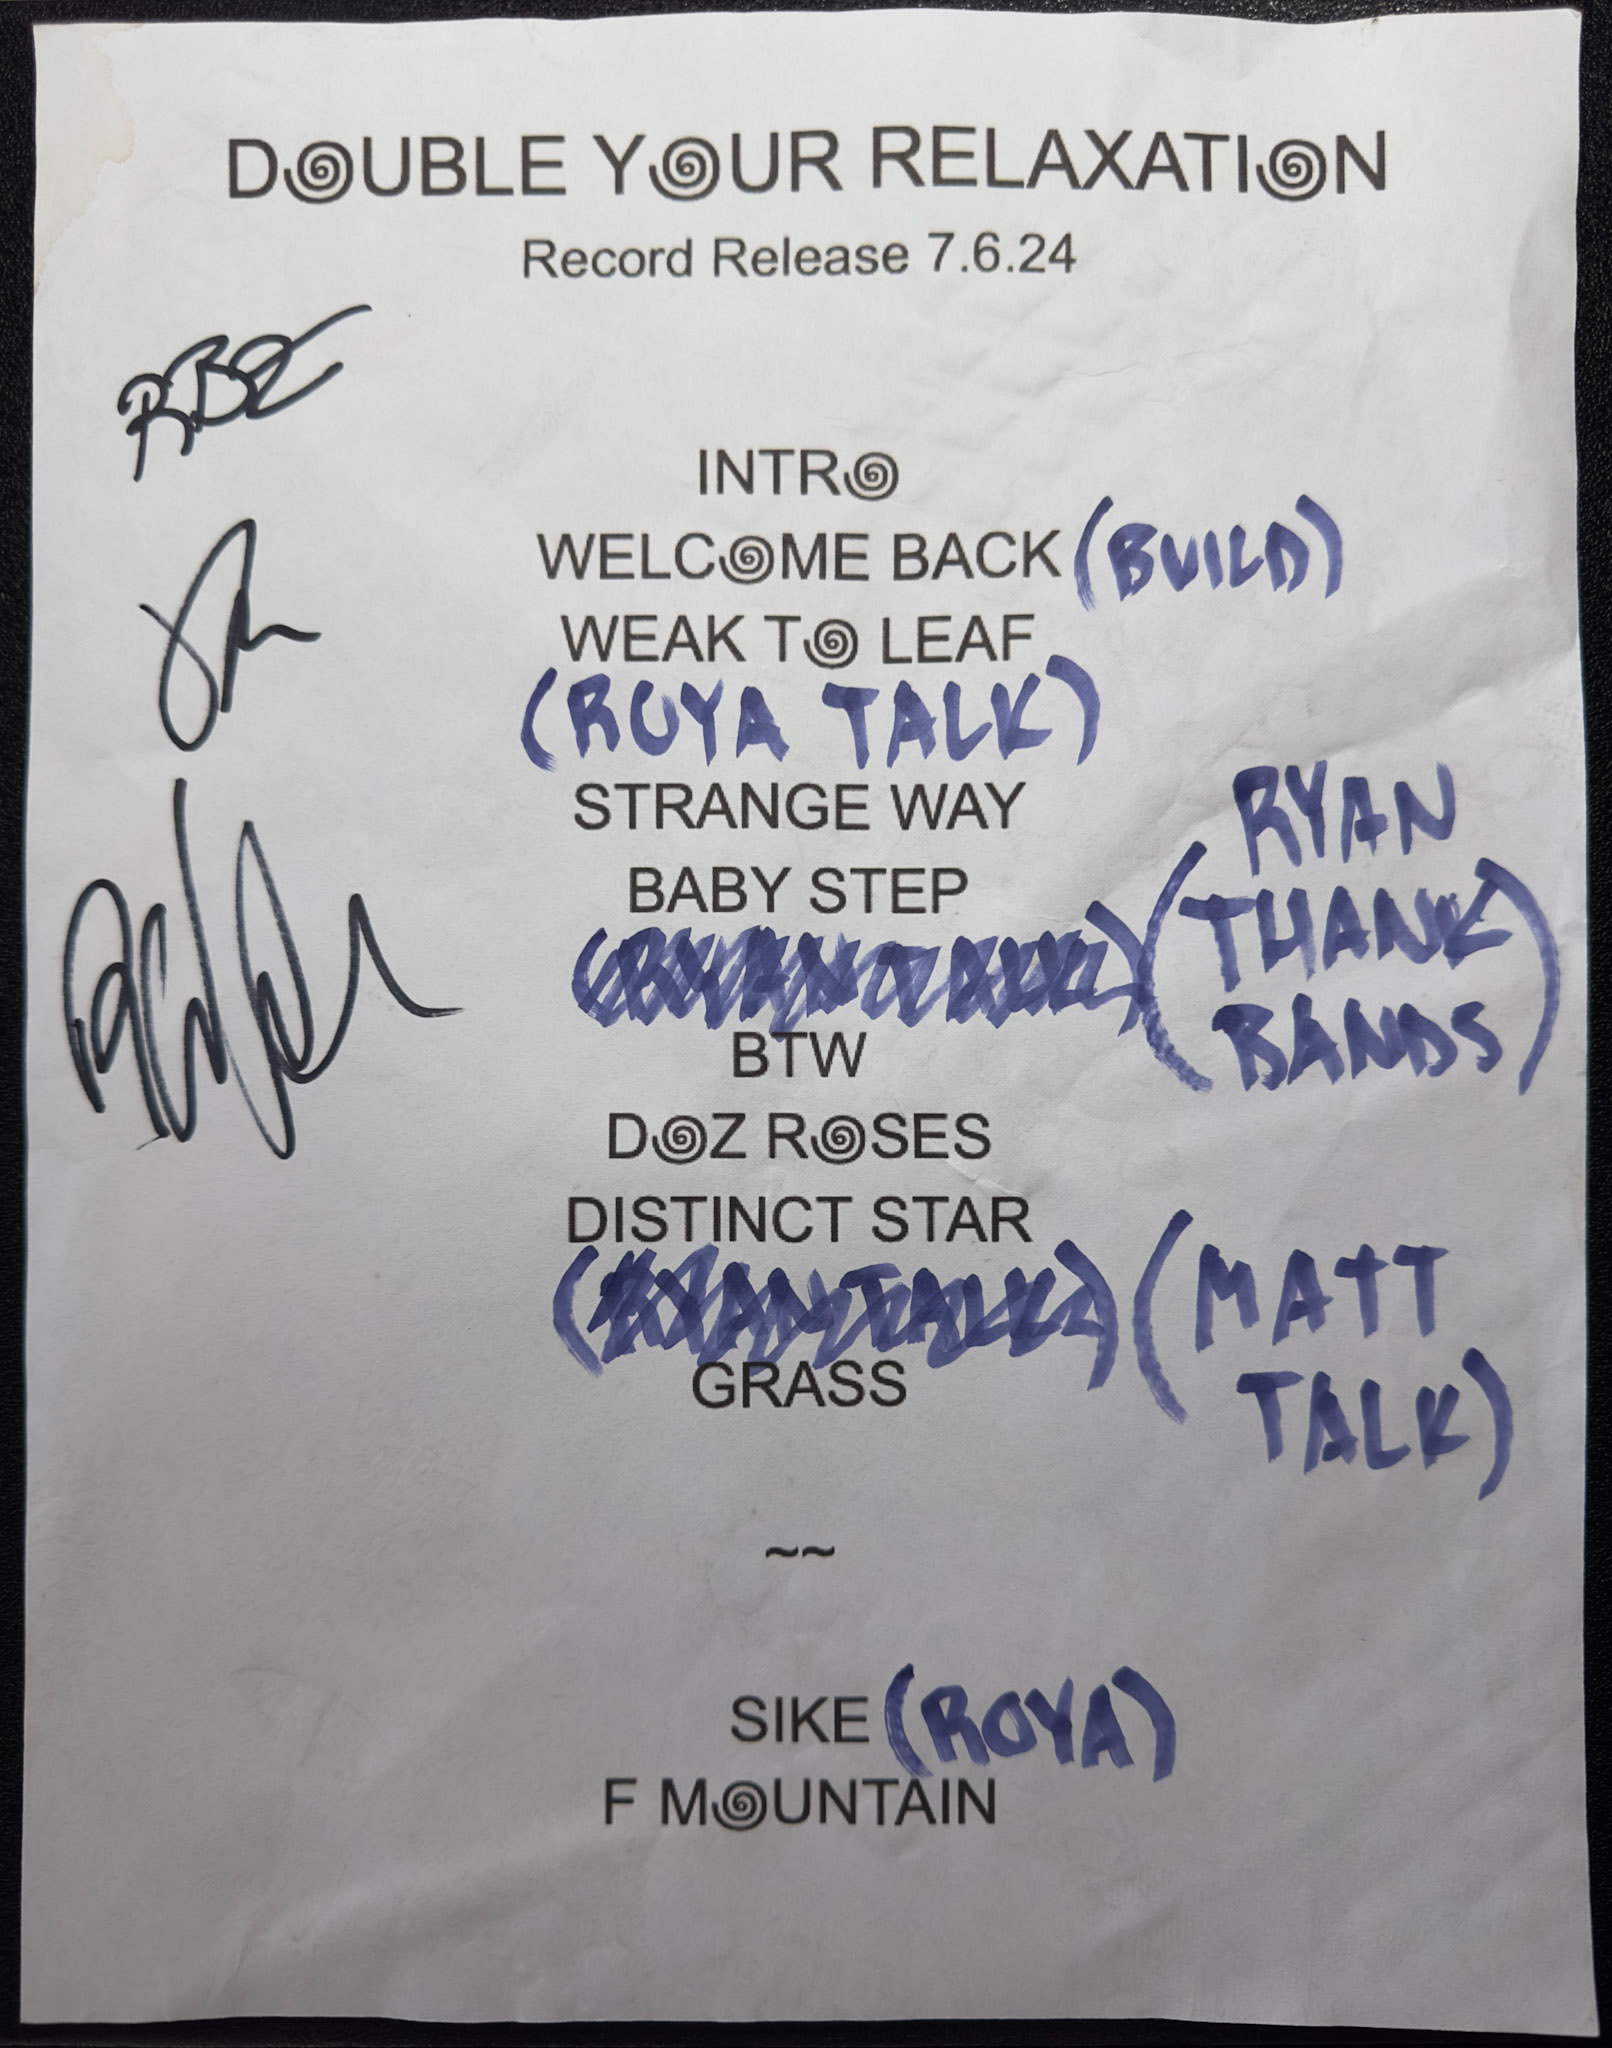 DOUBLE YOUR RELAXATION
Record Release 7.6.24
RBE
INTRO
WELCOME BACK (BUILD)
WEAK TO LEAF
(ROYA TALK)
STRANGE WAY
BABY STEP
(RYAN TALK)
(RYAN
THANK
BANDS)
BTW
DOZ ROSES
DISTINCT STAR
(RYAN TALK)
(MATT
TALK)
GRASS
~~
SIKE (ROYA)
F MOUNTAIN